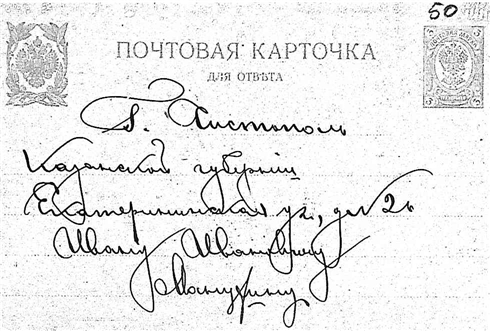 50
ПОЧТОВАЯ КАРТОЧКА
ДЛЯ ОТВѢТА
Г. Чистополь
Казанской губерніи
Екатерининская ул, дом № 2
Ивану Ивановичу